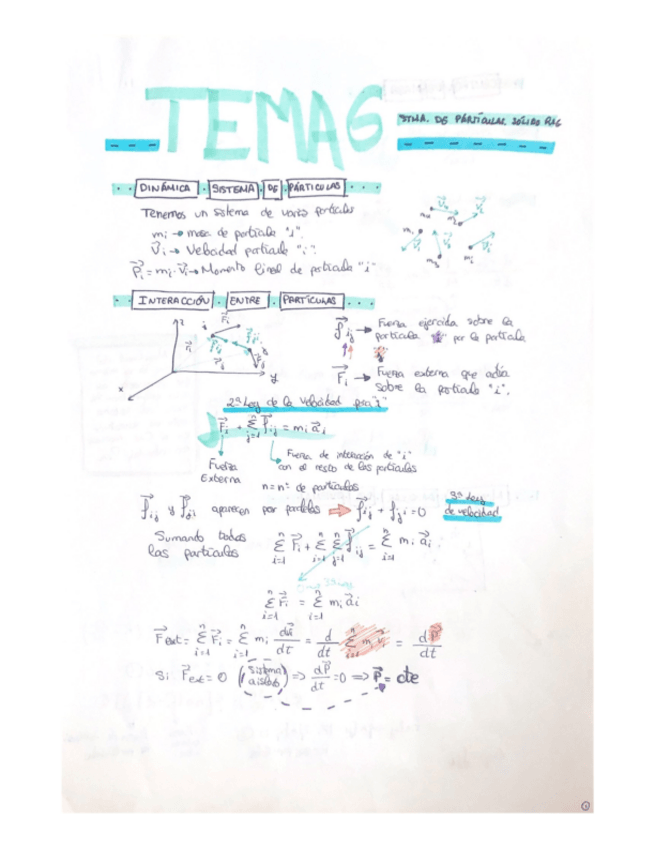 TEMA 6
STMA. DE PARTÍCULAS. SÓLIDO RÍG
DINÁMICA SISTEMA DE PARTICULAS
Tenemos un sistema de varias partículas
mi → masa de partícula "i".
V⃗i → Velocidad partícula "i".
P⃗i = mi·V⃗i → Momento lineal de partícula "i"
INTERACCIÓN ENTRE PARTÍCULAS
z
F⃗i
y
x
f⃗ij → Fuerza ejercida sobre la
partícula "i" por la partícula
"j"
F⃗i → Fuerza externa que actúa
sobre la partícula "i".
2ª Ley de la velocidad para "i"
F⃗i + Σ(j=1, n) f⃗ij = mi a⃗i
Fuerza Externa
Fuerza de interacción de "i"
con el resto de las partículas
n = nº de partículas
f⃗ij y f⃗ji aparecen por parejas ⇒ f⃗ij + f⃗ji = 0
3ª Ley
de velocidad
Sumando todas
las partículas
Σ(i=1, n) F⃗i + Σ(i=1, n) Σ(j=1, n) f⃗ij = Σ(i=1, n) mi a⃗i
Σ(i=1, n) F⃗i = Σ(i=1, n) mi a⃗i
F⃗ext = Σ(i=1, n) F⃗i = Σ(i=1, n) mi dv⃗i/dt = d/dt Σ(i=1, n) mi v⃗i = dP⃗/dt
Si F⃗ext = 0 (sistema aislado) ⇒ dP⃗/dt = 0 ⇒ P⃗ = cte
1